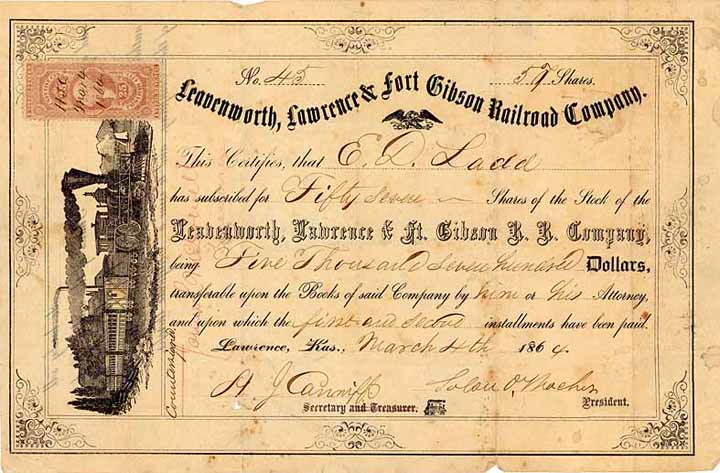 No. 45 57 Shares.
Leavenworth, Lawrence & Fort Gibson Railroad Company.
This Certifies, that E. D. Ladd
has subscribed for Fifty Seven Shares of the Stock of the
Leavenworth, Lawrence & Ft. Gibson R. R. Company,
being Five Thousand Seven hundred Dollars,
transferable upon the Books of said Company by him or his Attorney,
and upon which the first and second installments have been paid.
Lawrence, Kas., March 4th 1864
Secretary and Treasurer. President.
Countersigned
25